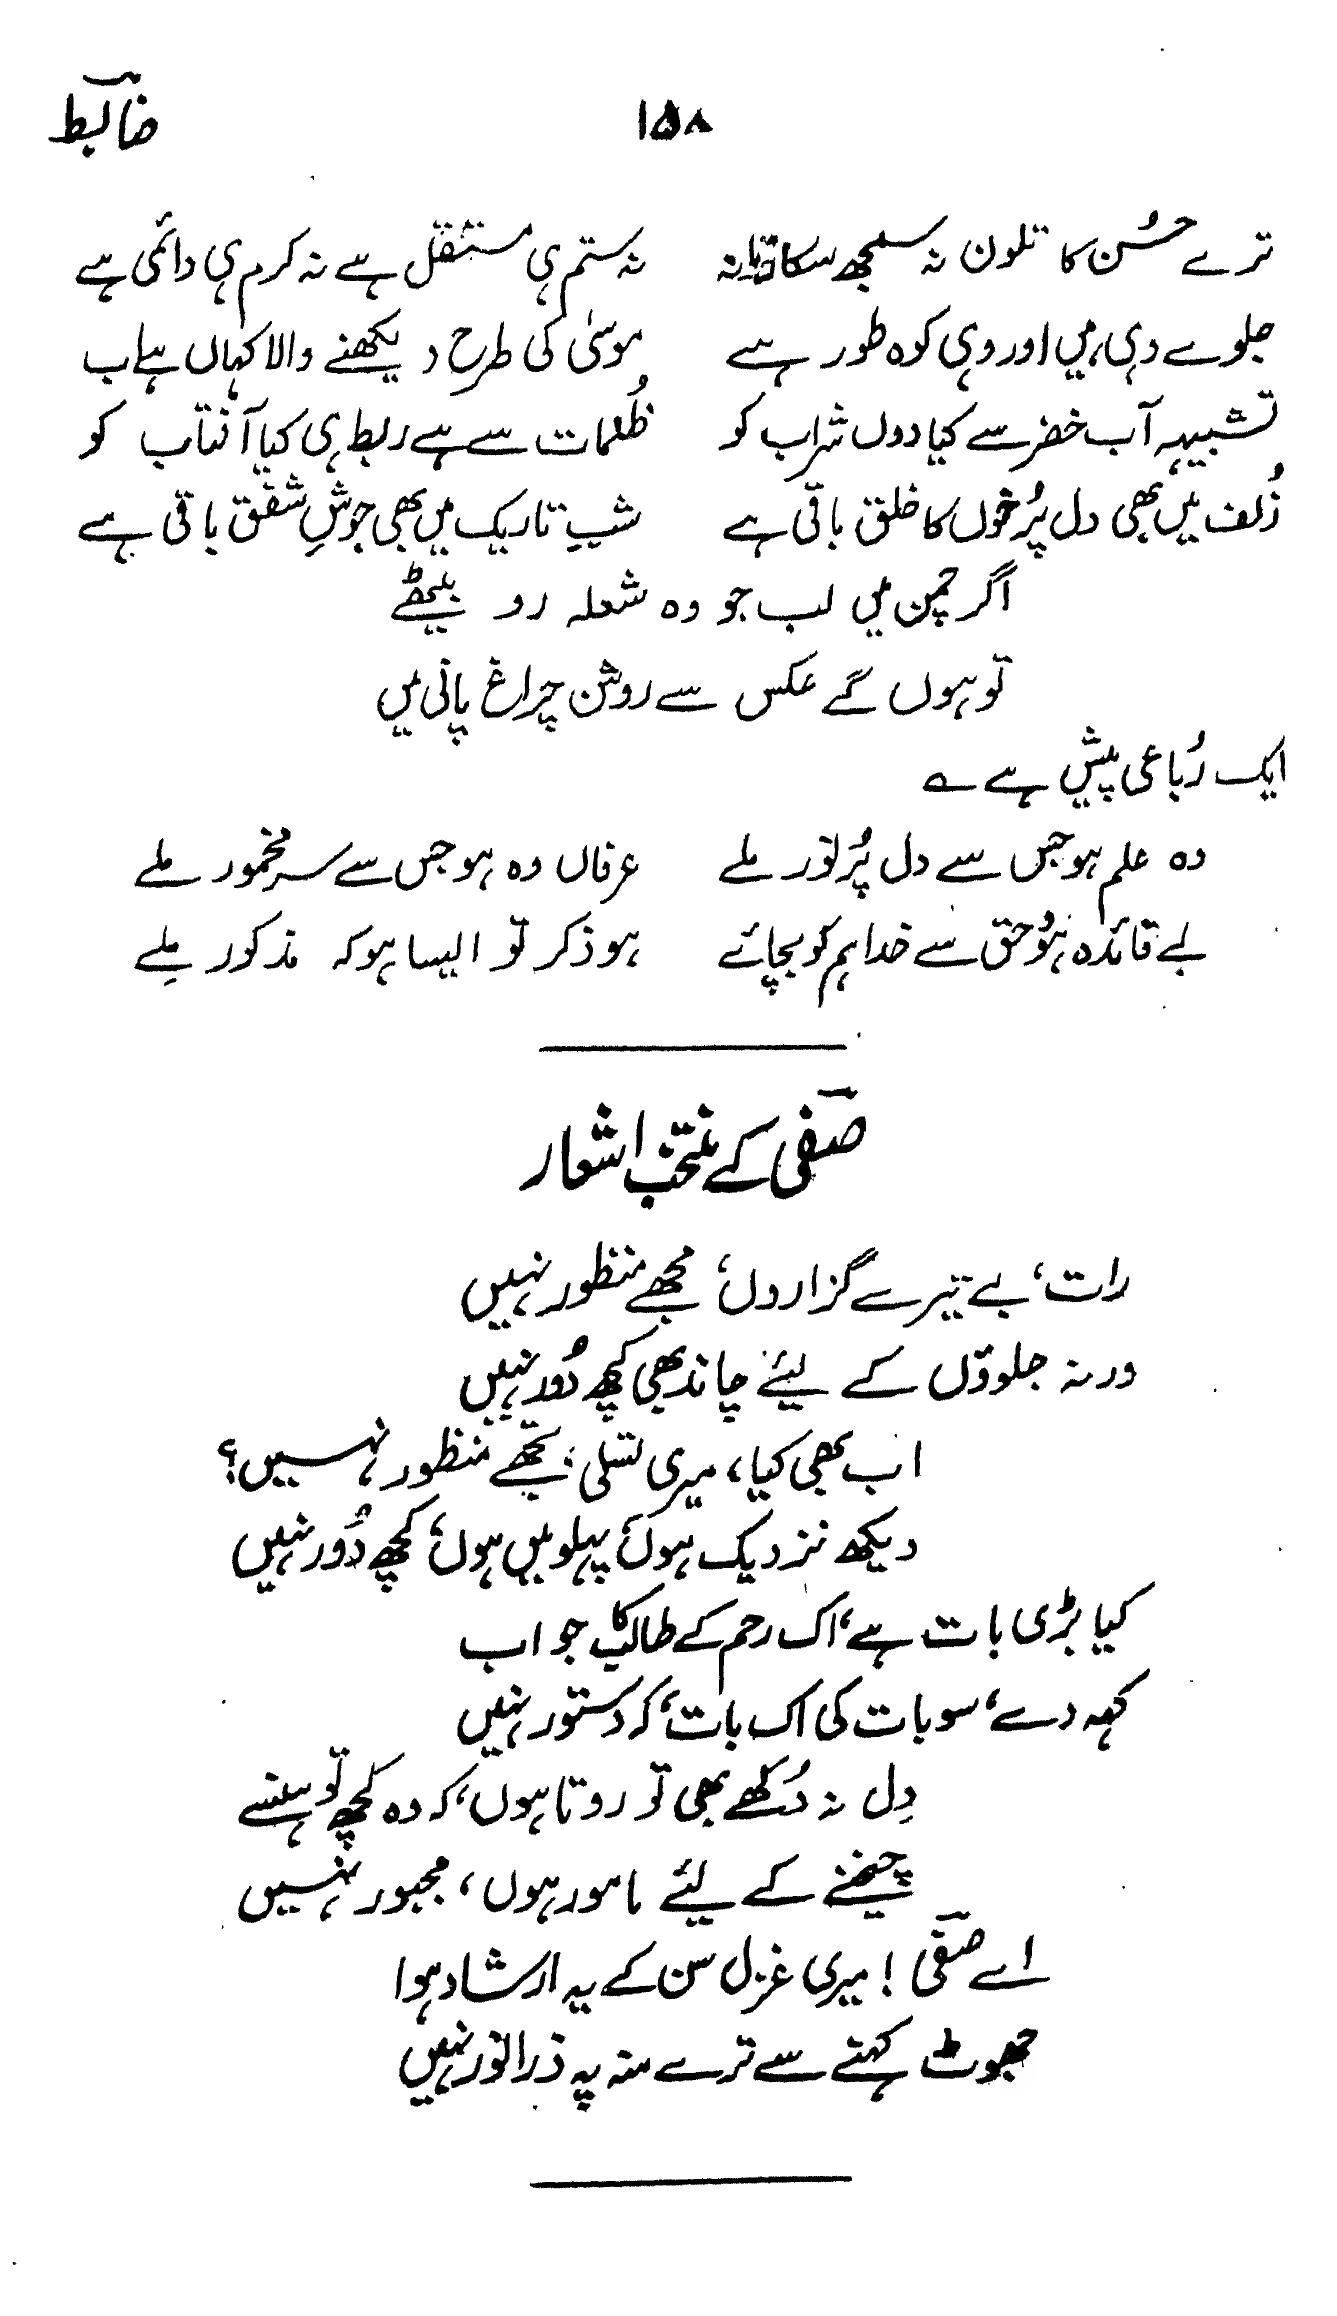 ۱۵۸ ضابط
ترے حُسن کا تلون نہ سمجھ سکا زمانہ نہ ستم ہی مستقل ہے نہ کرم ہی دائمی ہے
جلوے وہی ہیں اور وہی کوہ طور ہے موسیٰ کی طرح دیکھنے والا کہاں ہے اب
تشبیہہ آب خضر سے کیا دوں شراب کو ظُلمات سے ہے ربط ہی کیا آفتاب کو
زُلف میں بھی دل پُر خوں کا خلق باقی ہے شبِ تاریک میں بھی جوشِ شفق باقی ہے
اگر چمن میں لب جو وہ شعلہ رو بیٹھے
تو ہوں گے عکس سے روشن چراغ پانی میں
ایک رُباعی پیش ہے ؎
وہ علم ہو جس سے دل پُر نور ملے عرفاں وہ ہو جس سے سر مخمور ملے
بے فائدہ ہُو حق سے خدا ہم کو بچائے ہو ذکر تو ایسا ہو کہ مذکور مِلے
صفی کے منتخب اشعار
رات، بے تیرے گزار دوں، مجھے منظور نہیں
ورنہ جلوؤں کے لیئے چاند بھی کچھ دُور نہیں
اب بھی کیا، میری تسلی، تجھے منظور نہیں؟
دیکھ نزدیک ہوں، پہلو میں ہوں، کچھ دُور نہیں
کیا بڑی بات ہے، اک رحم کے طالب کا جواب
کہہ دے، سو بات کی اک بات، کہ دستور نہیں
دِل نہ دُکھے بھی تو روتا ہوں، کہ وہ کچھ تو ہنسے
چیخنے کے لیئے مامور ہوں، مجبور نہیں
اے صفی! میری غزل سن کے یہ ارشاد ہوا
جھوٹ کہنے سے ترے منہ پہ ذرا نور نہیں